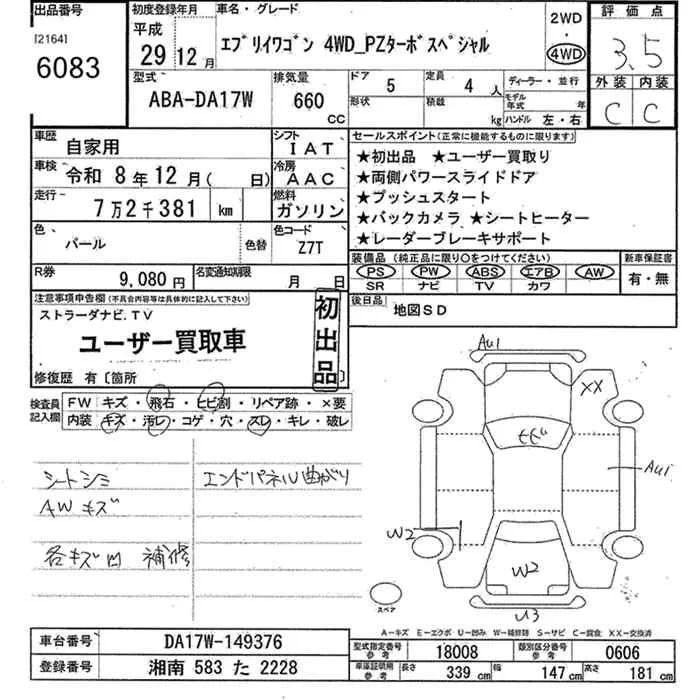 出品番号
[2164]
6083
初度登録年月
平成
29年
12月
車名・グレード
エブリイワゴン 4WD_PZターボスペシャル
2WD
・
4WD
評価点
3.5
外装 内装
C C
型式
ABA-DA17W
排気量
660
CC
ドア
5
定員
4人
形状
積載
kg
ディーラー・並行
モデル年式 年
ハンドル 左・右
車歴
自家用
シフト
IAT
車検
令和 8年12月( 日)
冷房
AAC
走行
7万2千381 km
燃料
ガソリン
色
パール
色替
色コード
Z7T
R券
9,080円
名変通知期限
月 日
セールスポイント(正常に機能するものに限ります)
★初出品 ★ユーザー買取り
★両側パワースライドドア
★プッシュスタート
★バックカメラ ★シートヒーター
★レーダーブレーキサポート
装備品(純正品に限り○をつけてください)
PS PW ABS エアB AW
SR ナビ TV カワ
新車保証書
有・無
後日品
地図SD
注意事項申告欄(不具合内容等は具体的に記入して下さい)
ストラーダナビ.TV
ユーザー買取車
初出品
修復歴 有〔箇所 〕
検査員記入欄
FW キズ・飛石・ヒビ割・リペア跡・×要
内装 キズ・汚レ・コゲ・穴・スレ・キレ・破レ
シートシミ
AWキズ
各キズ凹 補修
エンドパネル曲がり
AU1
XX
AU1
W2
W2
U3
スペア
A-キズ E-エクボ U-凹み W-補修跡 S-サビ C-腐食 XX-交換済
車台番号
DA17W-149376
登録番号
湘南 583 た 2228
型式指定番号 参考
18008
類別区分番号 参考
0606
車庫証明用 参考
長さ 339 cm
幅 147 cm
高さ 181 cm